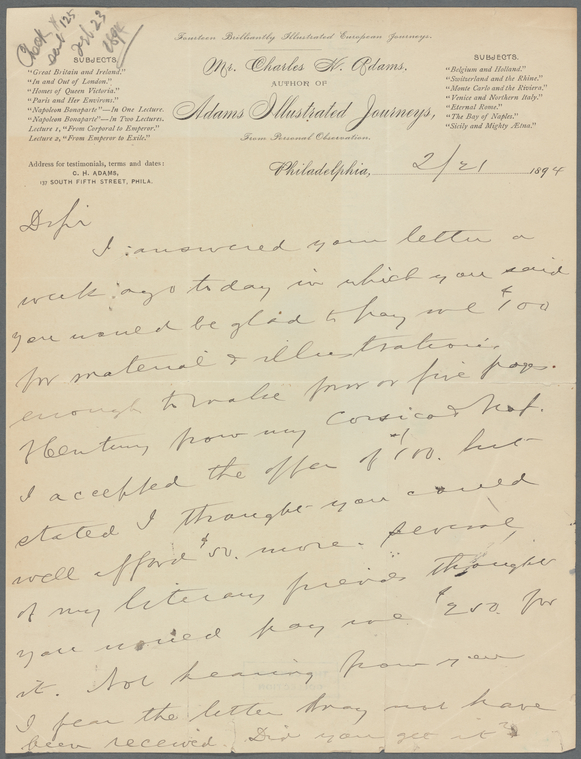 Check for
sent 125
Feb 23
1894
Fourteen Brilliantly Illustrated European Journeys.
Mr. Charles H. Adams,
AUTHOR OF
Adams Illustrated Journeys,
From Personal Observation.
SUBJECTS.
"Great Britain and Ireland."
"In and Out of London."
"Homes of Queen Victoria."
"Paris and Her Environs."
"Napoleon Bonaparte"—In One Lecture.
"Napoleon Bonaparte"—In Two Lectures.
Lecture 1, "From Corporal to Emperor."
Lecture 2, "From Emperor to Exile."
SUBJECTS.
"Belgium and Holland."
"Switzerland and the Rhine."
"Monte Carlo and the Riviera."
"Venice and Northern Italy."
"Eternal Rome."
"The Bay of Naples."
"Sicily and Mighty Ætna."
Address for testimonials, terms and dates:
C. H. ADAMS,
137 SOUTH FIFTH STREET, PHILA.
Philadelphia, 2/21 1894
D Sir
I answered your letter a
week ago today in which you said
you would be glad to pay me $100
for material & illustrations
enough to make four or five pages.
Century from my Corsica & Nap.
I accepted the offer of $100. but
stated I thought you could
well afford $50. more. Several
of my literary friends thought
you would pay me $250. for
it. Not hearing from you
I fear the letter may not have
been received. Did you get it?